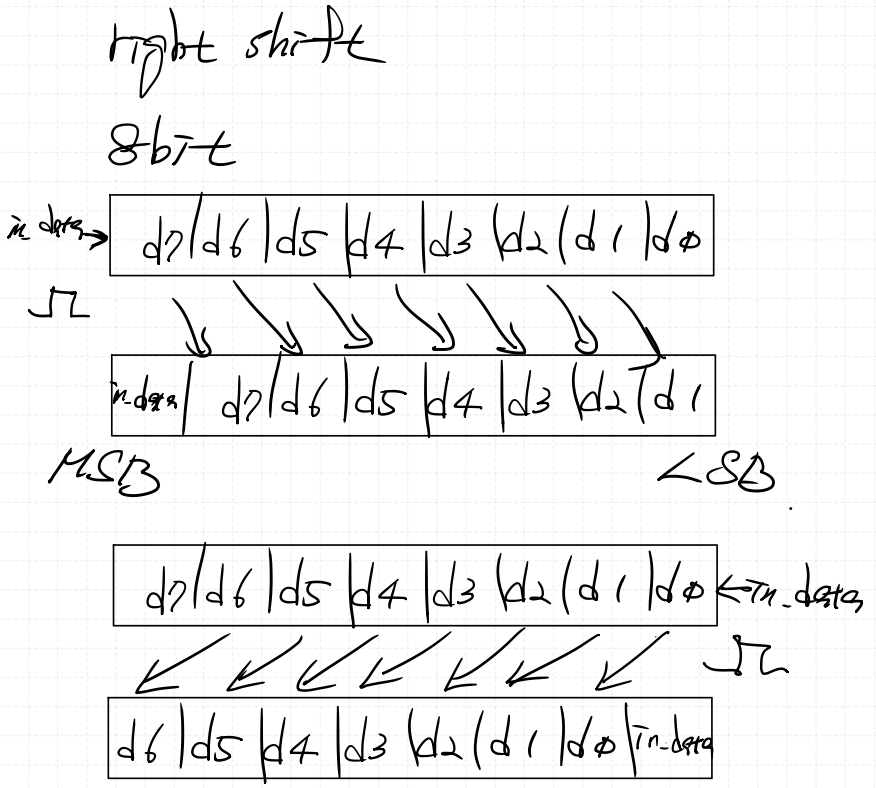 right shift
8bit
in_data d7 d6 d5 d4 d3 d2 d1 d0
in_data d7 d6 d5 d4 d3 d2 d1
MSB LSB
d7 d6 d5 d4 d3 d2 d1 d0 in_data
d6 d5 d4 d3 d2 d1 d0 in_data